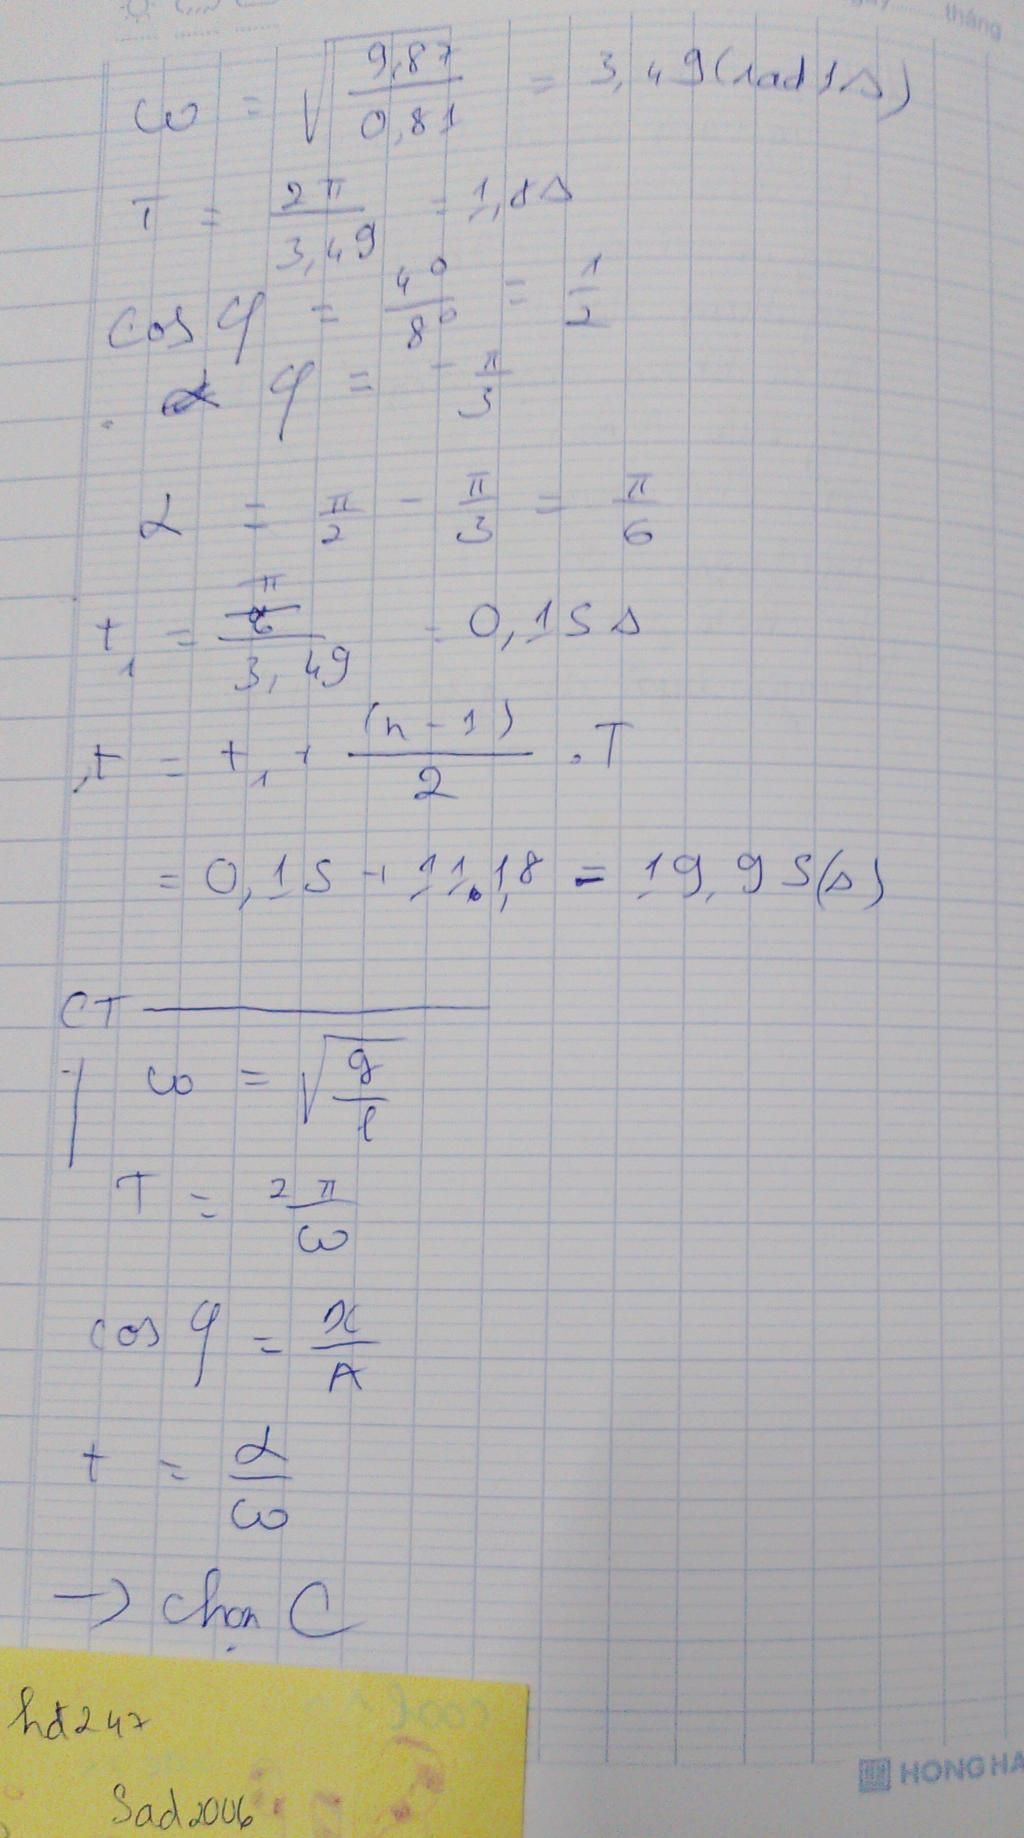 tháng
ω = √(9,87/0,81) = 3,49(rad/s)
T = 2π/3,49 = 1,8s
cos φ = 4°/8° = 1/2
φ = -π/3
α = π/2 - π/3 = π/6
t₁ = /3,49 = 0,15s
t = t₁ + (n-1)/2 . T
= 0,15 + 11.1,8 = 19,95(s)
CT
ω = √(g/l)
T = 2π/ω
cos φ = x/A
t = α/ω
→ chọn C
hd247
Sad2006
HONG HA